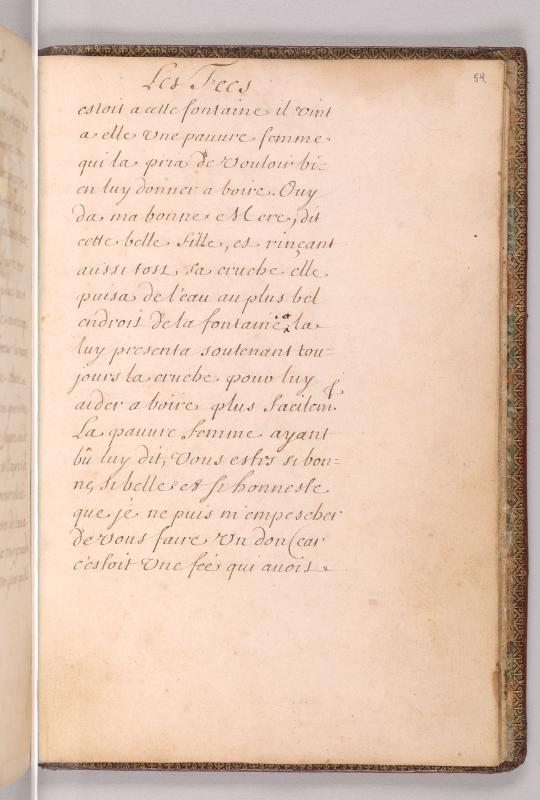 54
Les Fees
estoit a cette fontaine il vint
a elle une pauure femme
qui la pria de vouloir bi-
en luy donner a boire. Ouy
da ma bonne Mere, dit
cette belle fille, et rinçant
aussi tost sa cruche elle
puisa de l'eau au plus bel
endroit de la fontaine & la
luy presenta soutenant tou-
jours la cruche pour luy
aider a boire plus facilem.t
La pauure femme ayant
bû luy dit, Vous estes si bon-
ne, si belle et si honneste
que je ne puis m'empescher
de vous faire un don (car
c'estoit une feé qui auoit